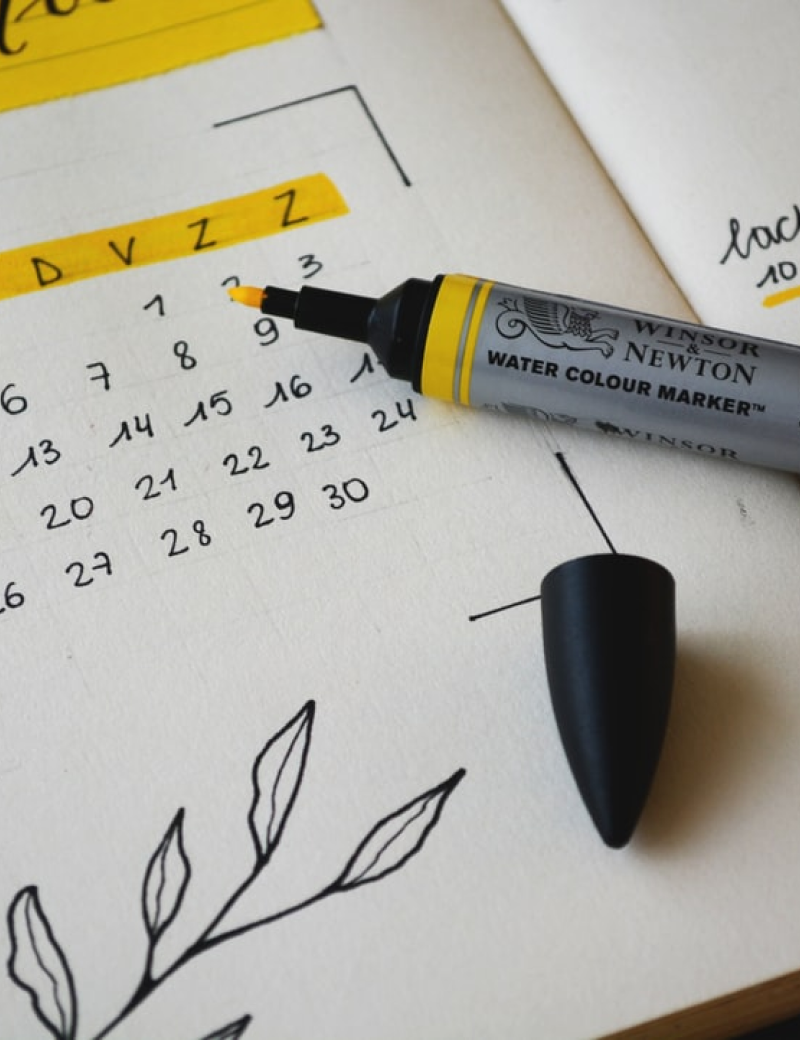 D V Z Z
1 2 3
6 7 8 9
13 14 15 16
20 21 22 23 24
26 27 28 29 30
WINSOR
&
NEWTON
WATER COLOUR MARKER™
WINSOR
10